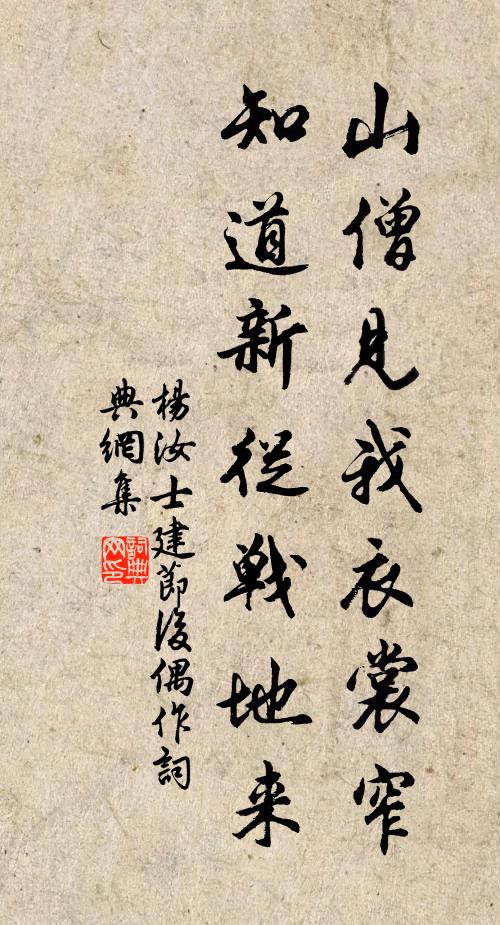 山僧見我衣裳窄
知道新從戰地来
楊汝士建節後偶作詞
典網集
詞典網印